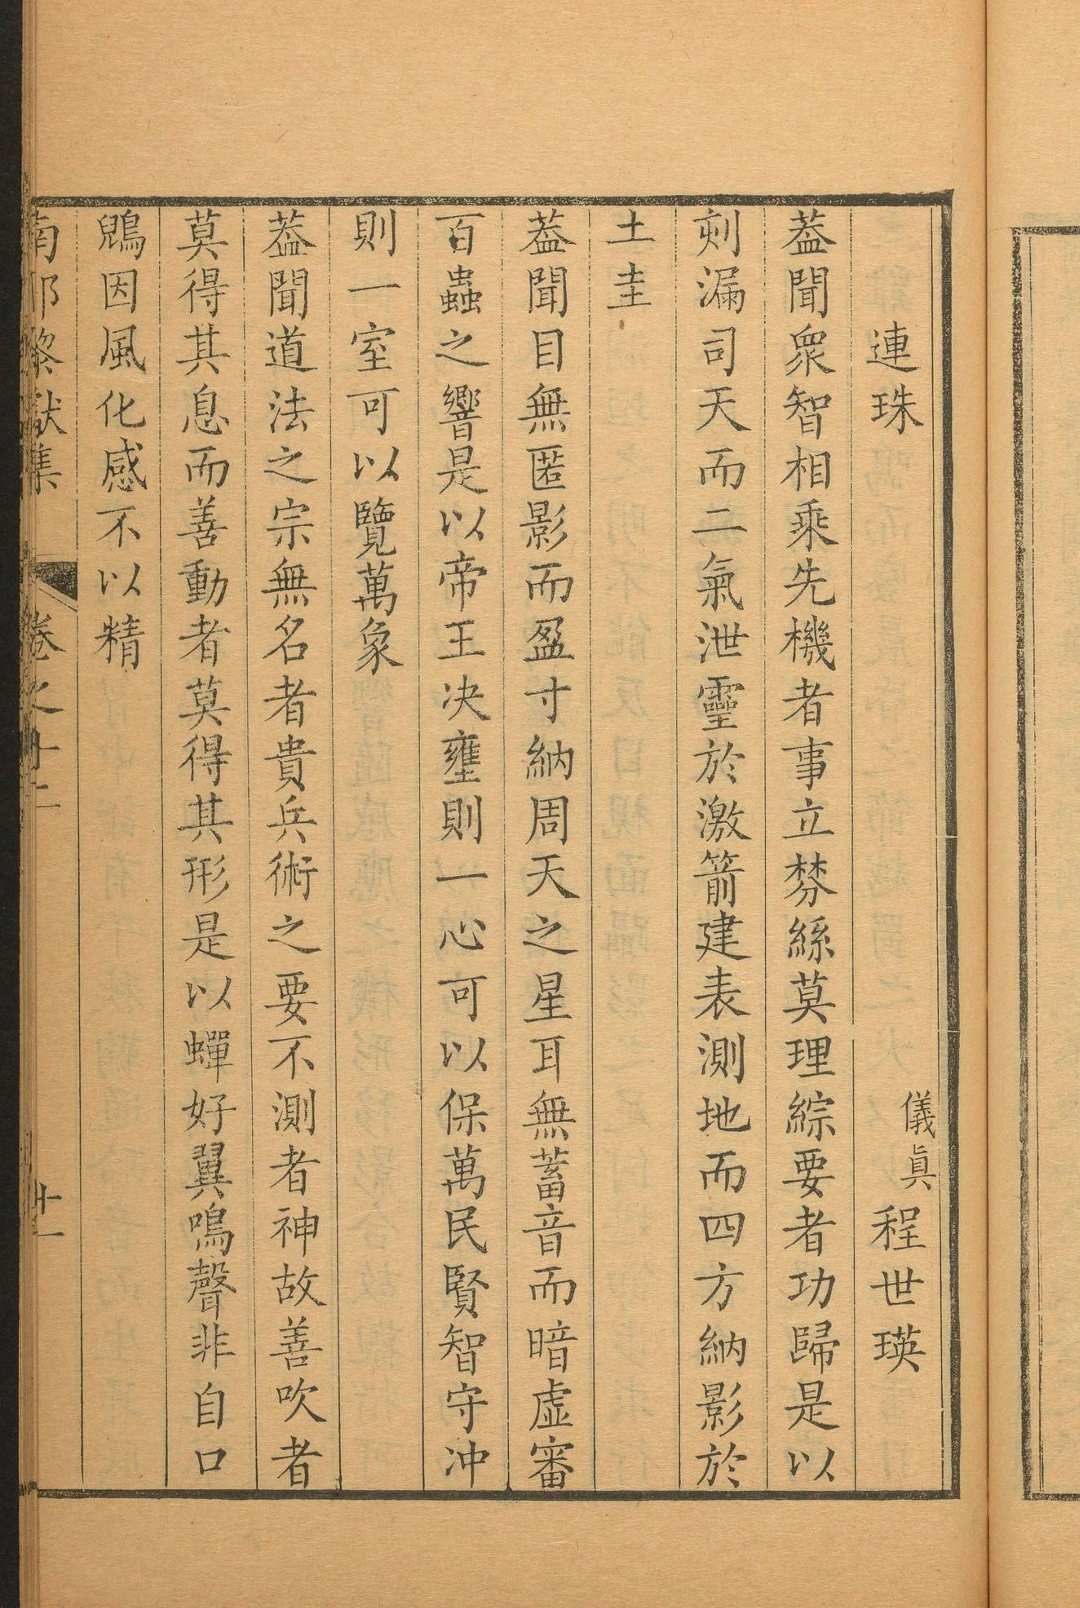 連珠 儀眞 程世瑛
葢聞衆智相乘先機者事立棼絲莫理綜要者功歸是以
刻漏司天而二氣泄靈於激箭建表測地而四方納影於
土圭
葢聞目無匿影而盈寸納周天之星耳無蓄音而暗虛審
百蟲之響是以帝王决壅則一心可以保萬民賢智守冲
則一室可以覽萬象
葢聞道法之宗無名者貴兵術之要不測者神故善吹者
莫得其息而善動者莫得其形是以蟬好翼鳴聲非自口
鶂因風化感不以精
南邦黎獻集 卷之十二 廿一